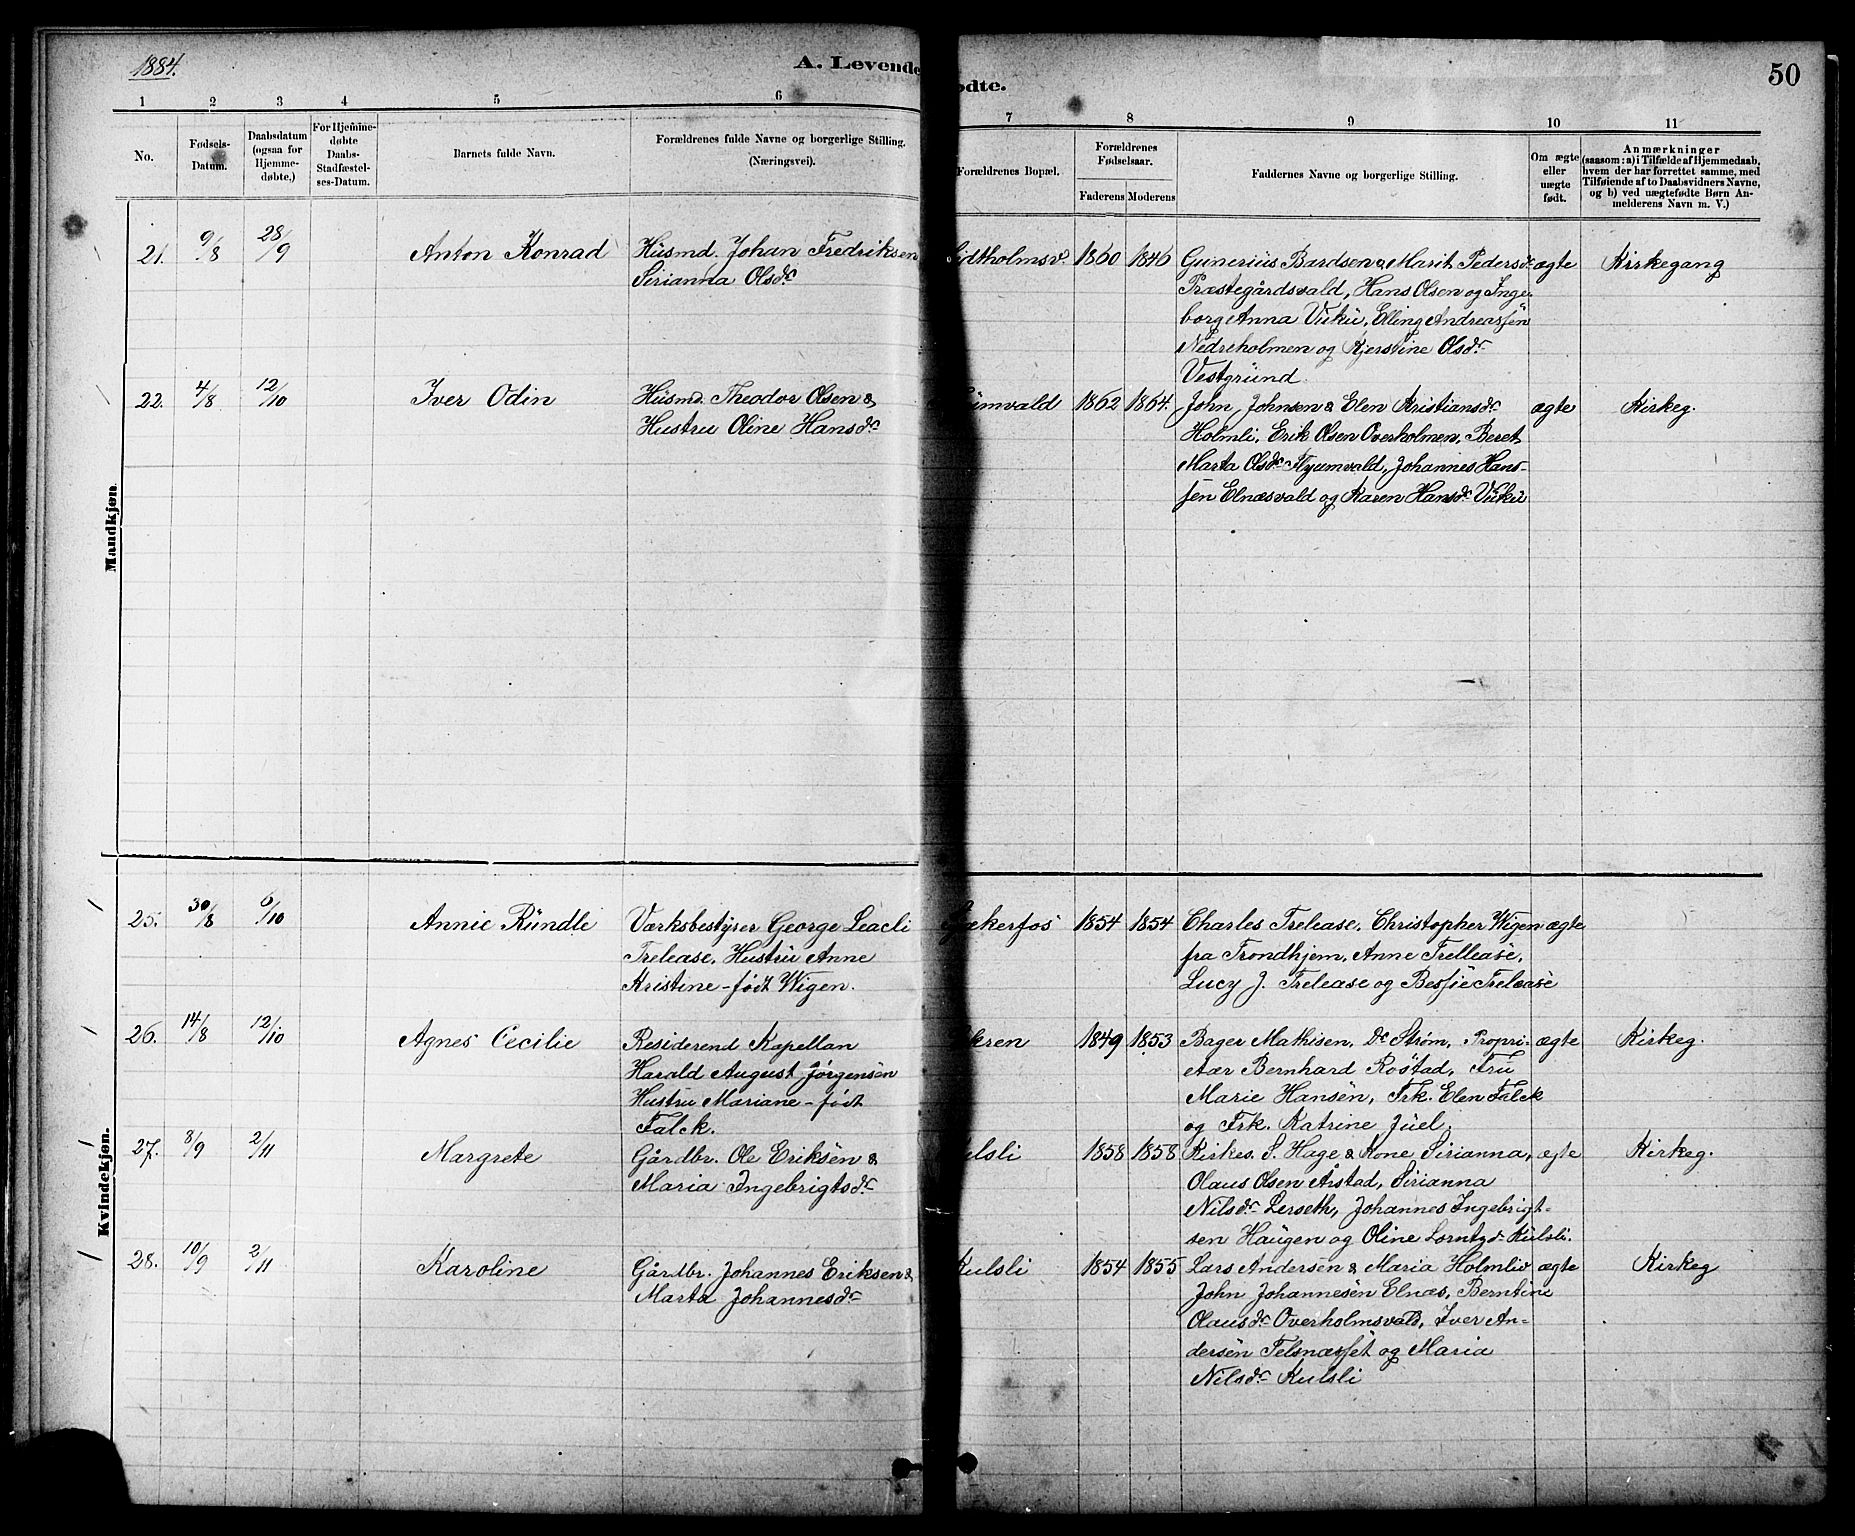 1884.
A. Levende
ødte.
50
1 2 3 4 5 6 7 8 9 10 11
No.
Fødsels-
Datum.
Daabsdatum
(ogsaa for
Hjemme-
døbte.)
For Hjemme-
døbte
Daabs-
Stadfæstel-
ses-Datum.
Barnets fulde Navn.
Forældrenes fulde Navne og borgerlige Stilling.
(Næringsvei).
Forældrenes Bopæl.
Forældrenes
Fødselsaar.
Faderens Moderens
Faddernes Navne og borgerlige Stilling.
Om ægte
eller
uægte
født.
Anmærkninger
(saasom: a) i Tilfælde af Hjemmedaab,
hvem der har forrettet samme, med
Tilføiende af to Daabsvidners Navne,
og b) ved uægtefødte Børn An-
melderens Navn m. V.)
Mandkjøn.
21. 9/8 28/9 Anton Konrad Husmd. Johan Fredriksen idtholmsv. 1860 1846 Gunerius Bardsen & Marit Pedersdr ægte Kirkegang
Sirianna Olsdr Præstegårdsvald, Hans Olsen og Inge-
borg Anna Vuku, Elling Andreassen
Nedreholmen og Kjerstine Olsdr
Vestgrund.
22. 4/8 12/10 Iver Odin Husmd. Theodor Olsen & umvald 1862 1864. John Johnsen & Elen Kristiansdr ægte Kirkeg.
Hustru Oline Hansdr Holmli, Erik Olsen Overholmen, Beret
Marta Olsdr Flyumvald, Johannes Hans-
sen Elnæsvald og Karen Hansdr Vuku
Kvindekjøn.
25. 30/8 6/10 Annie Rundle Værksbestyrer George Leacli kerfos 1854 1854 Charles Trelease, Christopher Wigen ægte
Trelease, Hustru Anne fra Trondhjem, Anne Trellease,
Kristine - født Wigen. Lucy J. Trelease og Bessie Trelease
26. 14/8 12/10 Agnes Cecilie Residerend Kapellan kren 1849 1853 Bager Mathisen, Dr Strøm, Propri- ægte Kirkeg.
Harald August Jørgensen etær Bernhard Röstad, Fru
Hustru Mariane - født Marie Hansen, Frk. Elen Falck
Falck. og Frk. Katrine Juel.
27. 8/9 2/11 Margrete Gårdbr. Ole Eriksen & ulsli 1858 1858 Kirkes. S. Hage & Kone Sirianna, ægte Kirkeg.
Maria Ingebrigtsdr Olaus Olsen Årstad, Sirianna
Nilsdr Lerseth, Johannes Ingebrigt-
sen Haugen og Oline Lorntzdr Kulsli.
28. 10/9 2/11 Karoline Gårdbr. Johannes Eriksen & Kulsli 1854 1855 Lars Andersen & Maria Holmliv ægte Kirkeg
Marta Johannesdr John Johannesen Elnæs, Berntine
Olausdr Overholmsvald, Iver An-
dersen Felsnæsset og Maria
Nilsdr Kulsli